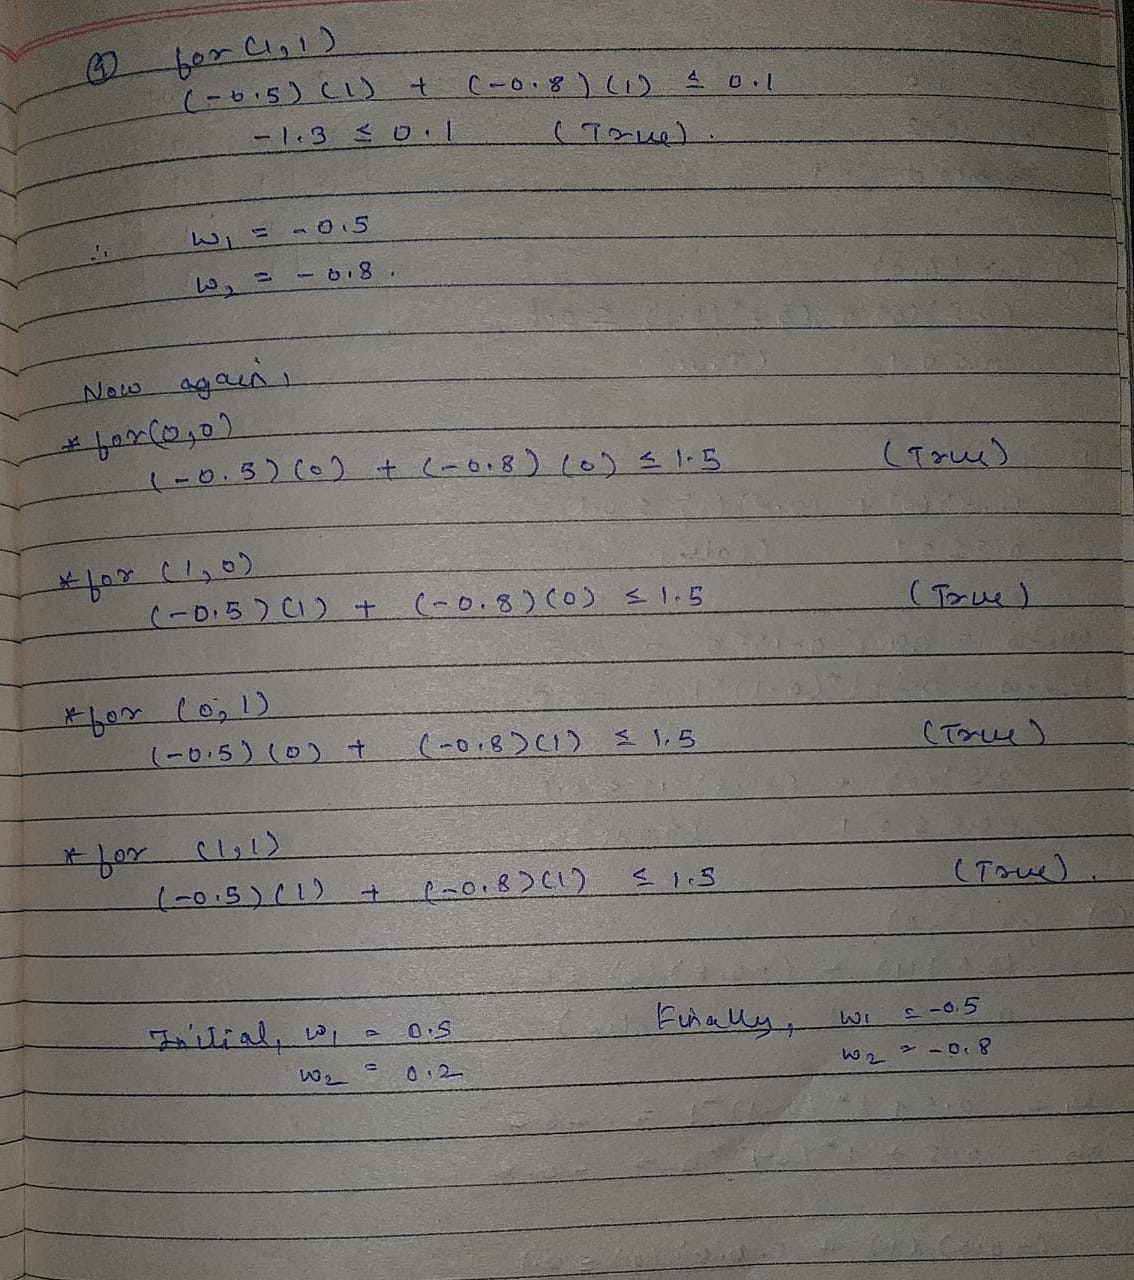 ④ for (1,1)
(-0.5)(1) + (-0.8)(1) ≤ 0.1
-1.3 ≤ 0.1 (True).
∴ w₁ = -0.5
w₂ = -0.8.
Now again,
* for (0,0)
(-0.5)(0) + (-0.8)(0) ≤ 1.5 (True)
* for (1,0)
(-0.5)(1) + (-0.8)(0) ≤ 1.5 (True)
* for (0,1)
(-0.5)(0) + (-0.8)(1) ≤ 1.5 (True)
* for (1,1)
(-0.5)(1) + (-0.8)(1) ≤ 1.5 (True).
Initial, w₁ = 0.5 Finally, w₁ = -0.5
w₂ = 0.2 w₂ = -0.8